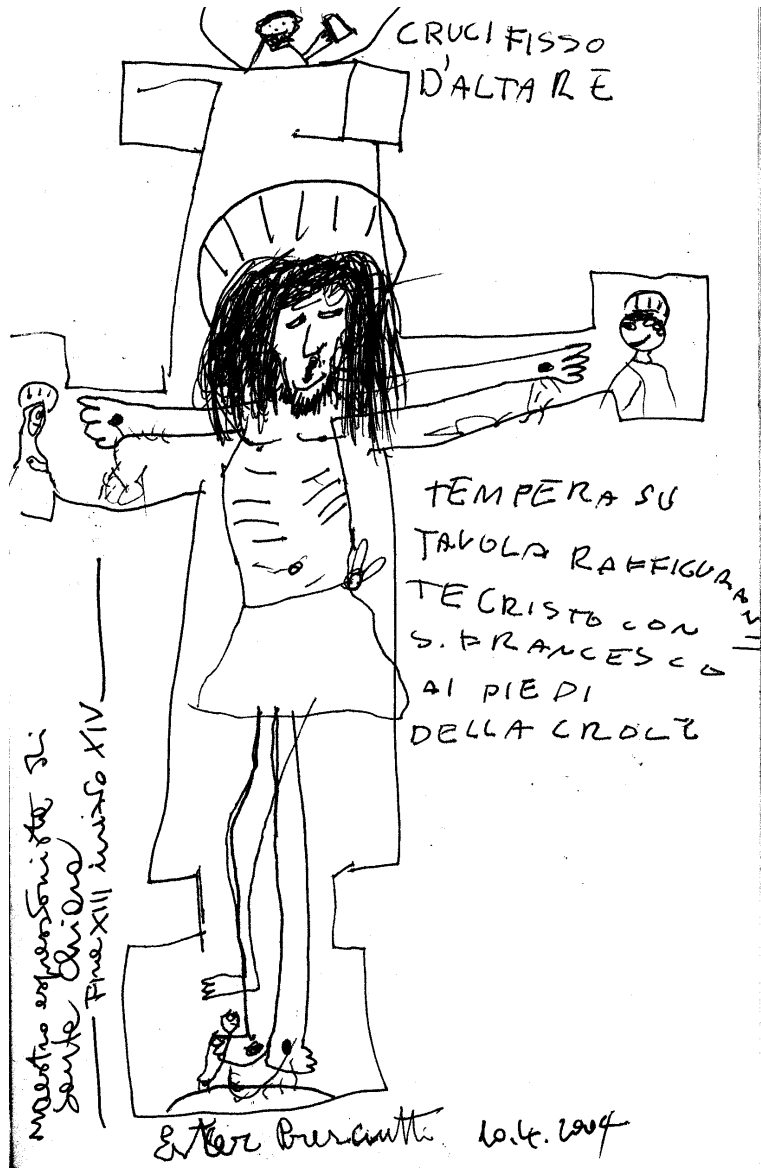 CRUCIFISSO
D'ALTARE
TEMPERA SU
TAVOLA RAFFIGURAN
TE CRISTO CON
S. FRANCESCO
AI PIEDI
DELLA CROCE
Maestro espressionista di
Santa Chiara
Fine XIII inizio XIV
Ester 10.4.2004